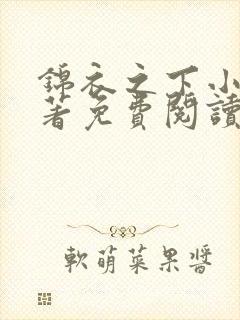 錦衣之下小
著免費閱讀
軟萌菜果醬